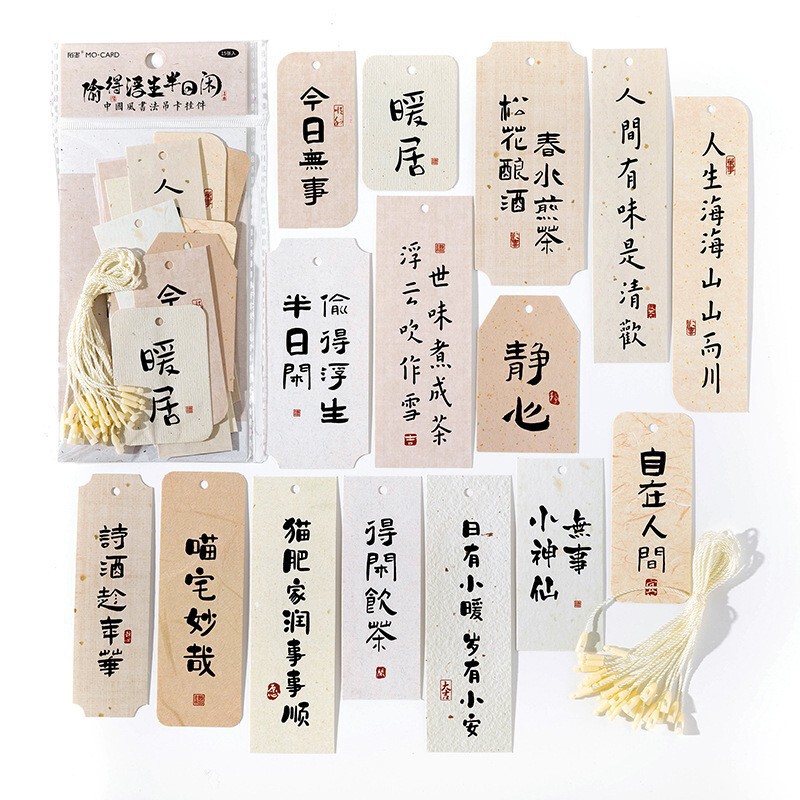 MO·CARD
15张入
偷得浮生半日闲
中國風書法吊卡挂件
人
今
暖居
今日無事
暖居
春水煎茶
松花酿酒
人間有味是清歡
人生海海山山而川
偷得浮生
半日閑
世味煮成茶
浮云吹作雪
静心
自在人間
詩酒趁年華
喵宅妙哉
猫肥家润事事顺
得閑飲茶
日有小暖 岁有小安
無事
小神仙